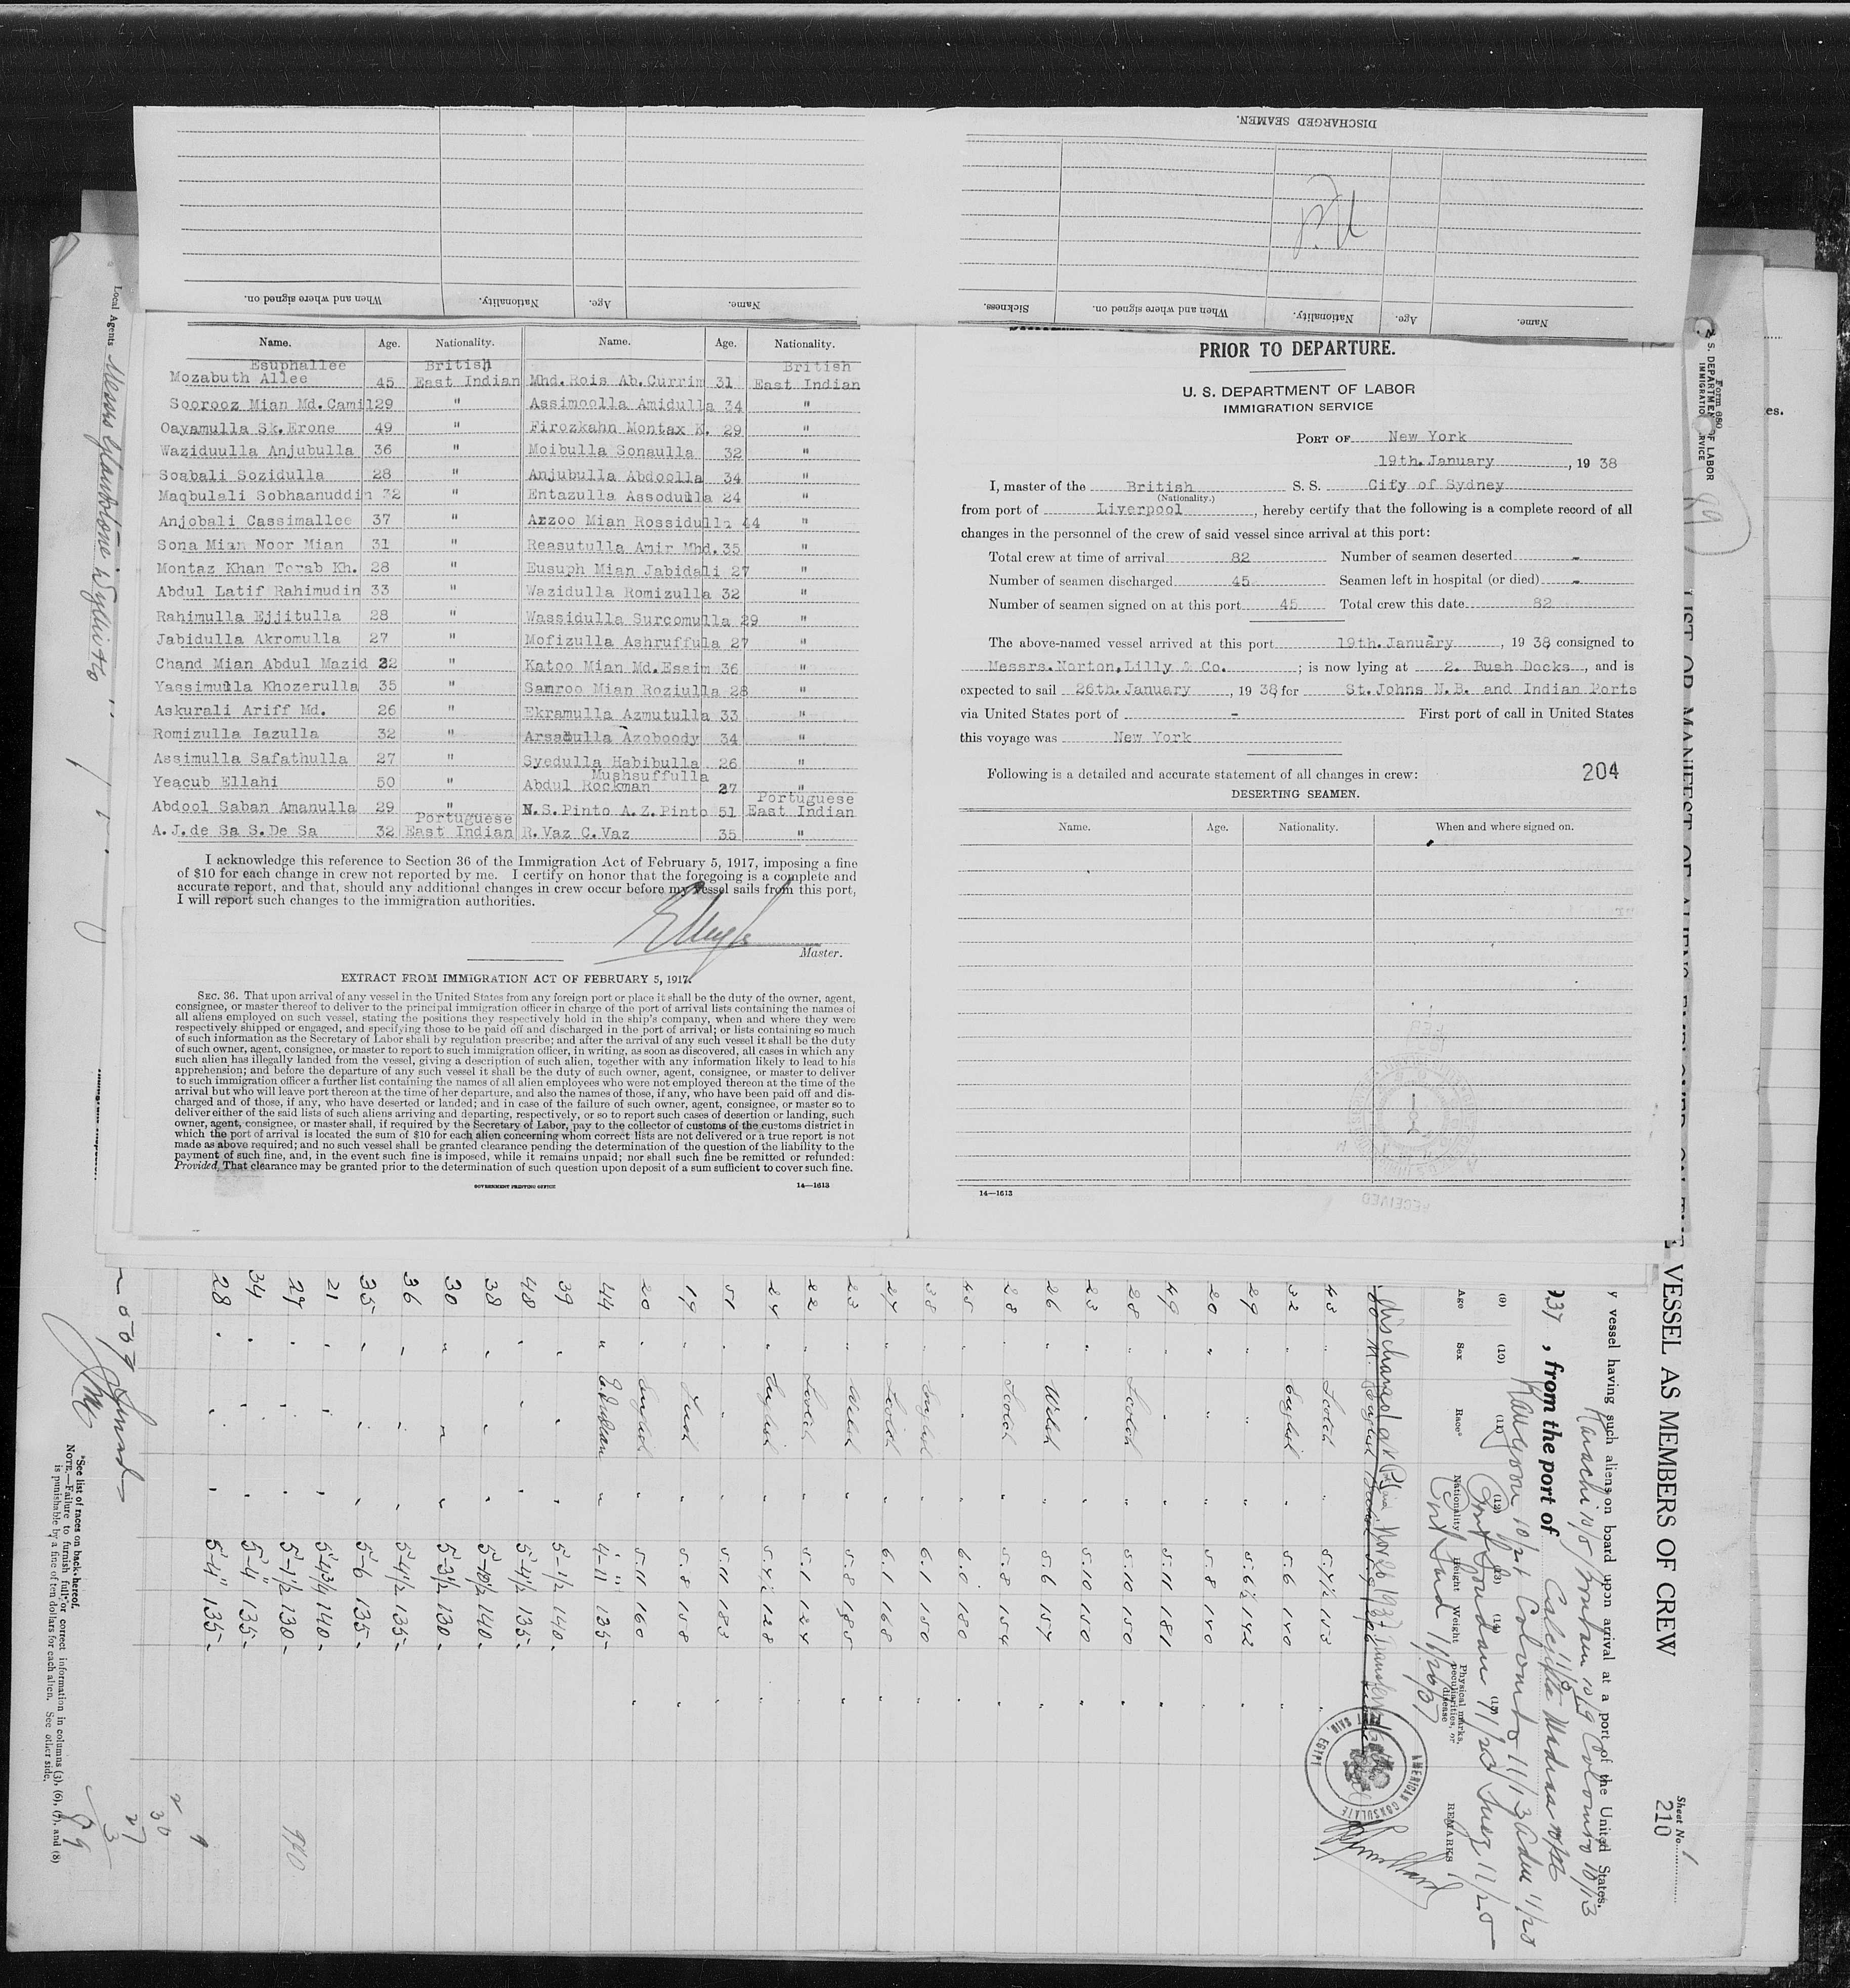 DISCHARGED SEAMEN.
Name. Age. Nationality. When and where signed on.
Name. Age. Nationality. When and where signed on. Sickness.
Name. Age. Nationality. Name. Age. Nationality.
Esuphallee British British
Mozabuth Allee 45 East Indian Mhd. Rois Ab. Currim 31 East Indian
Soorooz Mian Md. Camil 29 " Assimoolla Amidulla 34 "
Oayamulla Sk. Erone 49 " Firozkahn Montax K. 29 "
Waziduulla Anjubulla 36 " Moibulla Sonaulla 32 "
Soabali Sozidulla 28 " Anjubulla Abdoolla 34 "
Maqbulali Sobhaanuddin 32 " Entazulla Assodulla 24 "
Anjobali Cassimallee 37 " Arzoo Mian Rossidulla 44 "
Sona Mian Noor Mian 31 " Reasutulla Amir Mhd. 35 "
Montaz Khan Torab Kh. 28 " Eusuph Mian Jabidali 27 "
Abdul Latif Rahimudin 33 " Wazidulla Romizulla 32 "
Rahimulla Ejjitulla 28 " Wassidulla Surcomulla 29 "
Jabidulla Akromulla 27 " Mofizulla Ashruffula 27 "
Chand Mian Abdul Mazid 22 " Katoo Mian Md. Essim 36 "
Yassimulla Khozerulla 35 " Samroo Mian Roziulla 28 "
Askurali Ariff Md. 26 " Ekramulla Azmutulla 33 "
Romizulla Iazulla 32 " Arsadulla Azoboody 34 "
Assimulla Safathulla 27 " Syedulla Habibulla 26 "
Mushsuffulla
Yeacub Ellahi 50 " Abdul Rockman 27 "
Portuguese
Abdool Saban Amanulla 29 " N.S. Pinto A.Z. Pinto 51 East Indian
Portuguese
A.J. de Sa S. De Sa 32 East Indian R. Vaz C. Vaz 35 "
I acknowledge this reference to Section 36 of the Immigration Act of February 5, 1917, imposing a fine
of $10 for each change in crew not reported by me. I certify on honor that the foregoing is a complete and
accurate report, and that, should any additional changes in crew occur before my vessel sails from this port,
I will report such changes to the immigration authorities.
Master.
EXTRACT FROM IMMIGRATION ACT OF FEBRUARY 5, 1917.
SEC. 36. That upon arrival of any vessel in the United States from any foreign port or place it shall be the duty of the owner, agent,
consignee, or master thereof to deliver to the principal immigration officer in charge of the port of arrival lists containing the names of
all aliens employed on such vessel, stating the positions they respectively hold in the ship's company, when and where they were
respectively shipped or engaged, and specifying those to be paid off and discharged in the port of arrival; or lists containing so much
of such information as the Secretary of Labor shall by regulation prescribe; and after the arrival of any such vessel it shall be the duty
of such owner, agent, consignee, or master to report to such immigration officer, in writing, as soon as discovered, all cases in which any
such alien has illegally landed from the vessel, giving a description of such alien, together with any information likely to lead to his
apprehension; and before the departure of any such vessel it shall be the duty of such owner, agent, consignee, or master to deliver
to such immigration officer a further list containing the names of all alien employees who were not employed thereon at the time of the
arrival but who will leave port thereon at the time of her departure, and also the names of those, if any, who have been paid off and dis-
charged and of those, if any, who have deserted or landed; and in case of the failure of such owner, agent, consignee, or master so to
deliver either of the said lists of such aliens arriving and departing, respectively, or so to report such cases of desertion or landing, such
owner, agent, consignee, or master shall, if required by the Secretary of Labor, pay to the collector of customs of the customs district in
which the port of arrival is located the sum of $10 for each alien concerning whom correct lists are not delivered or a true report is not
made as above required; and no such vessel shall be granted clearance pending the determination of the question of the liability to the
payment of such fine, and, in the event such fine is imposed, while it remains unpaid; nor shall such fine be remitted or refunded:
Provided, That clearance may be granted prior to the determination of such question upon deposit of a sum sufficient to cover such fine.
GOVERNMENT PRINTING OFFICE 14—1613
PRIOR TO DEPARTURE.
U. S. DEPARTMENT OF LABOR
IMMIGRATION SERVICE
PORT OF New York
19th. January, 1938
I, master of the British S. S. City of Sydney
(Nationality.)
from port of Liverpool, hereby certify that the following is a complete record of all
changes in the personnel of the crew of said vessel since arrival at this port:
Total crew at time of arrival 82 Number of seamen deserted -
Number of seamen discharged 45 Seamen left in hospital (or died) -
Number of seamen signed on at this port 45 Total crew this date 82
The above-named vessel arrived at this port 19th. January, 1938, consigned to
Messrs. Norton, Lilly & Co. ; is now lying at 2. Bush Docks, and is
expected to sail 26th. January, 1938, for St. Johns N.B. and Indian Ports
via United States port of - First port of call in United States
this voyage was New York
Following is a detailed and accurate statement of all changes in crew: 204
DESERTING SEAMEN.
Name. Age. Nationality. When and where signed on.
14—1613
RECEIVED
Form 680
U. S. DEPARTMENT OF LABOR
IMMIGRATION SERVICE
Local Agents
VESSEL AS MEMBERS OF CREW
Sheet No. 1
210
y vessel having such aliens on board upon arrival at a port of the United States.
Karachi 10/5 Bombay 10/9 Colombo 10/13
Calcutta Madras
937, from the port of
Rangoon 10/24 Colombo 11/13 Aden 11/20
Port Soudan 11/23 Suez 11/25
Port Said 11/26/37
(9) (10) (11) (12) (13) (14) (15)
Age Sex Race* Nationality Height Weight Physical marks, peculiarities, or disease REMARKS
Discharged at Port Said Nov 26 1937
AMERICAN CONSULATE
PORT SAID, EGYPT
43 " Scotch " 5.7½ 153
32 " English " 5.6 140
29 " " " 5.6½ 142
20 " " " 5.8 140
49 " " " 5.11 181
28 " Scotch " 5.10 150
23 " " " 5.10 150
26 " Welsh " 5.6 157
28 " Scotch " 5.8 154
45 " " " 6.0 180
38 " English " 6.1 150
27 " Scotch " 6.1 168
23 " Welsh " 5.8 185
22 " Scotch " 5.1 124
24 " English " 5.4½ 128
51 " " " 5.11 183
19 " Irish " 5.8 158
20 " English " 5.11 160
44 " E. Indian " 4-11 135
39 " " " 5-1½ 140
48 " " " 5-4½ 135
38 " " " 5-10½ 140
30 " " " 5-3½ 130
36 " " " 5-4½ 135
35 " " " 5-6 135
21 " " " 5-4¾ 140
27 " " " 5-1½ 130
34 " " " 5-4" 135
28 " " " 5-4" 135
*See list of races on back hereof.
NOTE.—Failure to furnish full or correct information in columns (3), (6), (7), and (8)
is punishable by a fine of ten dollars for each alien. See other side.